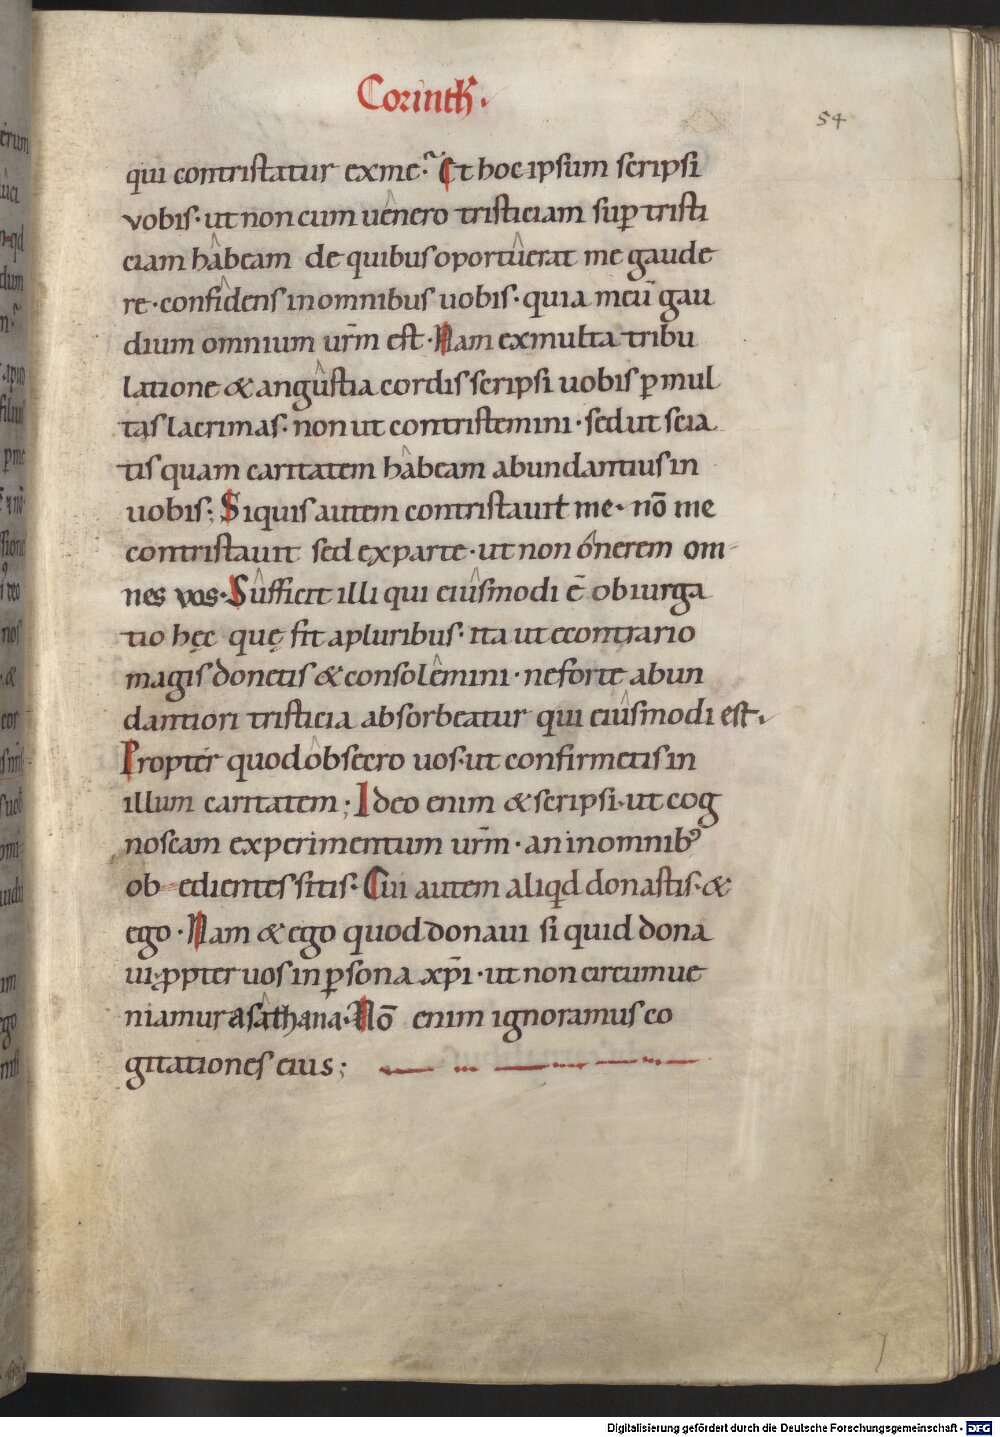 Corinth.
54
qui contristatur ex me. Et hoc ipsum scripsi
vobis. ut non cum uenero tristiciam sup tristi
ciam habeam de quibus oportuerat me gaude
re. confidens in omnibus uobis. quia meū gau
dium omnium urm̄ est. Nam ex multa tribu
latione & angustia cordis scripsi uobis p mul
tas lacrimas. non ut contristemini. sed ut scia
tis quam caritatem habeam abundantius in
uobis; Si quis autem contristauit me. nō me
contristauit sed ex parte. ut non onerem om-
nes vos. Sufficit illi qui eiusmodi ē obiurga
tio hęc quę fit a pluribus. ita ut econtrario
magis donetis & consolemini. ne forte abun
dantiori tristicia absorbeatur qui eiusmodi est.
Propter quod obsecro uos. ut confirmetis in
illum caritatem; Ideo enim & scripsi. ut cog
noscam experimentum urm̄. an in omnib;
ob-edientes sitis. Cui autem aliqd donastis. &
ego. Nam & ego quod donaui si quid dona
ui. ppter uos in psona xp̄i. ut non circumue
niamur a sathana. Nō enim ignoramus co
gitationes eius;
Digitalisierung gefördert durch die Deutsche Forschungsgemeinschaft - DFG